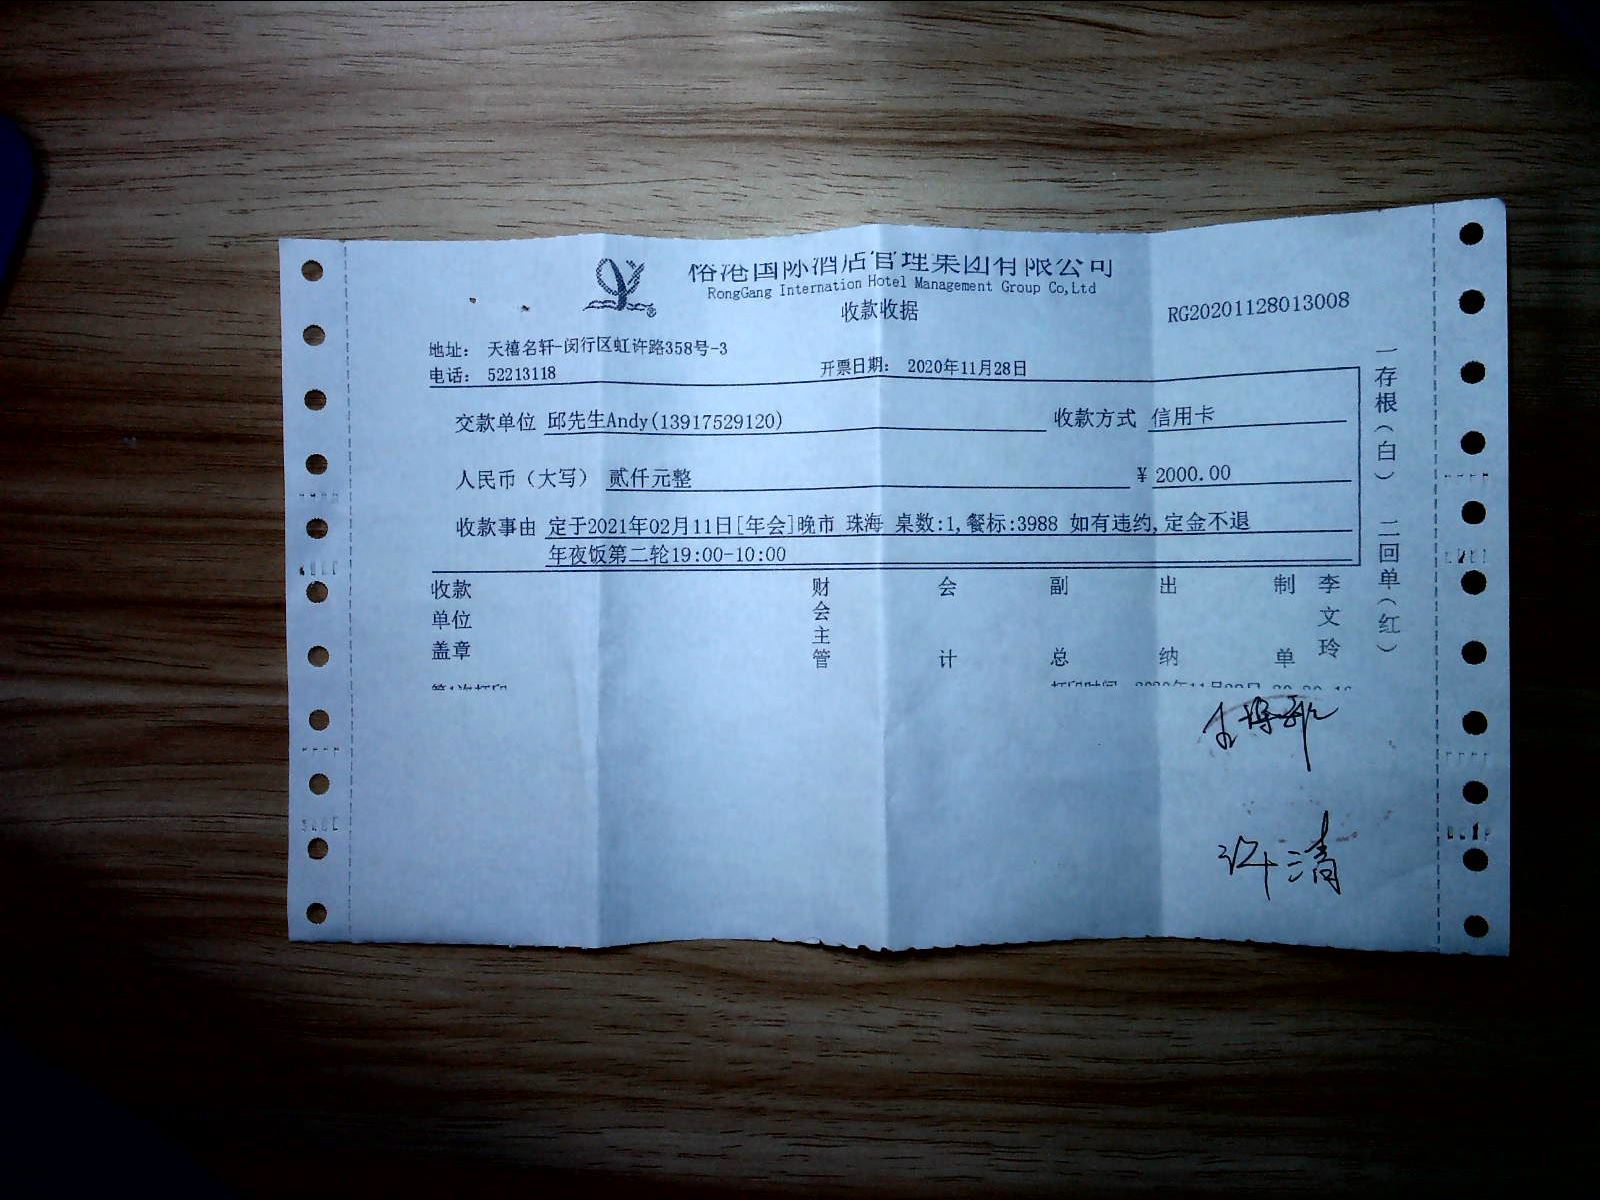 国际酒店管理集团有限公司
RongGang Internation Hotel Management Group Co,Ltd
收款收据
RG20201128013008
地址: 天禧名轩-闵行区虹许路358号-3
电话: 52213118
开票日期: 2020年11月28日
交款单位 邱先生Andy(13917529120)
收款方式 信用卡
人民币(大写) 贰仟元整
¥ 2000.00
收款事由 定于2021年02月11日[年会]晚市 珠海 桌数:1,餐标:3988 如有违约,定金不退
年夜饭第二轮19:00-10:00
收款单位盖章
财会主管
会计
副总
出纳
制单
李文玲
一存根(白) 二回单(红)
许清